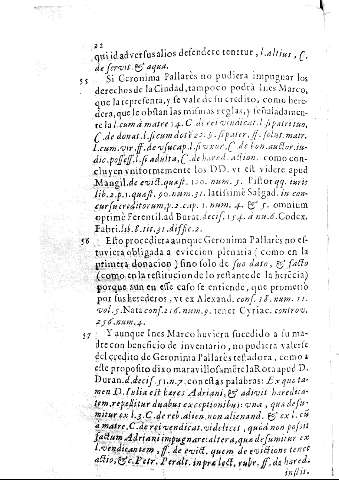 22
qui id adversus alios defendere tenetur, l. altius, C.
de servit. & aqua.
55 Si Geronima Pallarès no pudiera impugnar los
derechos de la Ciudad, tampoco podrà Ines Marco,
que la representa, y se vale de su credito, como here-
dera, que le obstan las mismas reglas, y señaladamen-
te la l. cum à matre 14. C. de rei vendicat. l. si pater tuo,
C. de donat. l. si cum dotē 22. §. si pater, ff. solut. matr.
l. cum vir, ff. de usucap. l. si uxor, C. de bon. auctor. iu-
dic. posses. l. si adulta, C. de hared. action. como con-
cluyen vniformemente los DD. vt est videre apud
Mangil. de evict. quæst. 120. num. 5. Pistor qq. iuris
lib. 2. p. 1. quæst. 50. num. 31. latissimè Salgad. in con-
cursu creditorum, p. 2. cap. 1. num. 4. & 5. omnium
optimè Ferentil. ad Burat. decis. 154. à nu. 6. Codex.
Fabri. lib. 8. tit. 31. diffic. 2.
56 Esto procediera aunque Geronima Pallarès no es-
tuviera obligada à eviccion plenaria (como en la
primera donacion) sino solo de suo dato, & facto
(como en la restitucion de lo restante de la herēcia)
porque aun en esse caso se entiende, que prometiò
por sus herederos, vt ex Alexand. cons. 18. num. 11.
vol. 5. Nata cons. 216. num. 9. tenet Cyriac. controv.
256. num. 4.
57 Y aunque Ines Marco huviera succedido à su ma-
dre con beneficio de inventario, no podaria valerse
del credito de Geronima Pallarès testadora, como à
este proposito dixo maravillosamēte la Rota apud D.
Duran. d. decis. 51. n. 7. con estas palabras: Ex quo ta-
men D. Iulia est heres Adriani, & adivit heredita-
tem, repellitur duabus exceptionibus: una, qua desu-
mitur ex l. 3. C. de reb. alien. non alienand. & ex l. cū
à matre, C. de rei vendicat. videlicet, quòd non possit
factum Adriani impugnare: altera, qua desumitur ex
l. vendicantem, ff. de evict. quem de evictione tenet
actio, &c. Petr. Peralt. in prælect. rubr. ff. de hared.
instit.